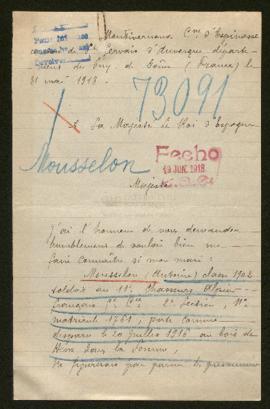 Montivernoux Cne d'Espinasse
Gervais d'Auvergne départe-
ment du Puy de Dôme (France) le
31 mai 1918.
73091
A Sa Majesté le Roi d'Espagne
Mousselon
Fecho
19 JUN. 1918
Majesté
J'ai l'honneur de vous demander
humblement de vouloir bien me
faire connaître si mon mari:
Mousselon (Antonin) classe 1902
soldat au 11e Chasseurs Alpins
français 1re Cie 2e section, No
matricule 1761, porté comme
disparu le 20 juillet 1916 au bois de
Hem dans la Somme,
ne figurerait pas parmi les prisonniers